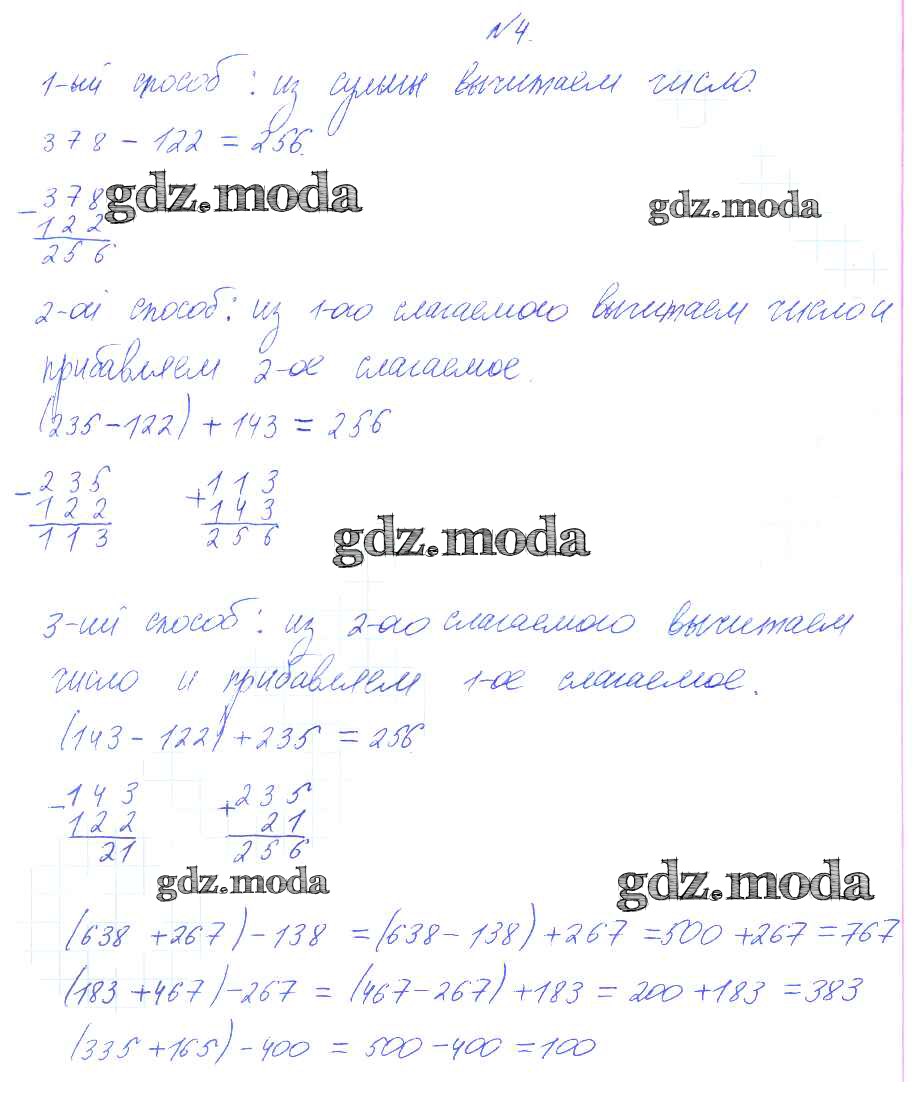 №4.
1-ый способ: из суммы вычитаем число.
378 - 122 = 256.
gdz.moda
gdz.moda
- 378
122
256
2-ой способ: из 1-ого слагаемого вычитаем число и
прибавляем 2-ое слагаемое.
(235 - 122) + 143 = 256
- 235 + 113
122 143
113 256
gdz.moda
3-ий способ: из 2-ого слагаемого вычитаем
число и прибавляем 1-ое слагаемое.
(143 - 122) + 235 = 256
- 143 + 235
122 21
21 256
gdz.moda
gdz.moda
(638 + 267) - 138 = (638 - 138) + 267 = 500 + 267 = 767
(183 + 467) - 267 = (467 - 267) + 183 = 200 + 183 = 383
(335 + 165) - 400 = 500 - 400 = 100